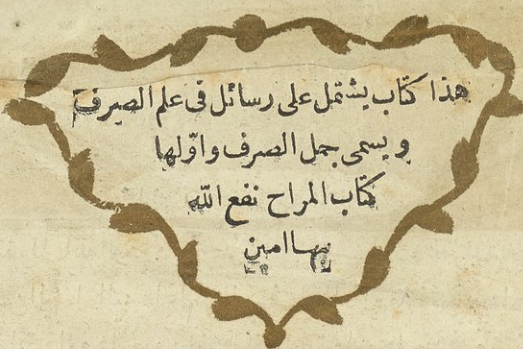 هذا كتاب يشتمل على رسائل فى علم الصرف
و يسمى جمل الصرف واوّلها
كتاب المراح نفع الله
بها امين